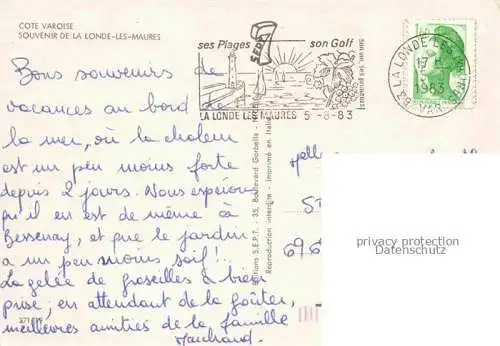 COTE VAROISE
SOUVENIR DE LA LONDE-LES-MAURES
ses Plages
son Golf
SEPT
Son vin, ses primeurs
LA LONDE LES MAURES 5-8-83
LA LONDE LES MAURES
17 H
5-8
1983
VAR
83
Bons souvenirs de
vacances au bord de
la mer, où la chaleur
est un peu moins forte
depuis 2 jours. Nous espérons
qu'il en est de même à
Bessenay, et que le jardin
a un peu moins soif!
La gelée de groseilles a bien
prise, en attendant de la goûter,
meilleures amitiés de la famille
Editions S.E.P.T. - 35, Boulevard Gorbella
Reproduction interdite - Imprimé en Italie
69
privacy protection
Datenschutz